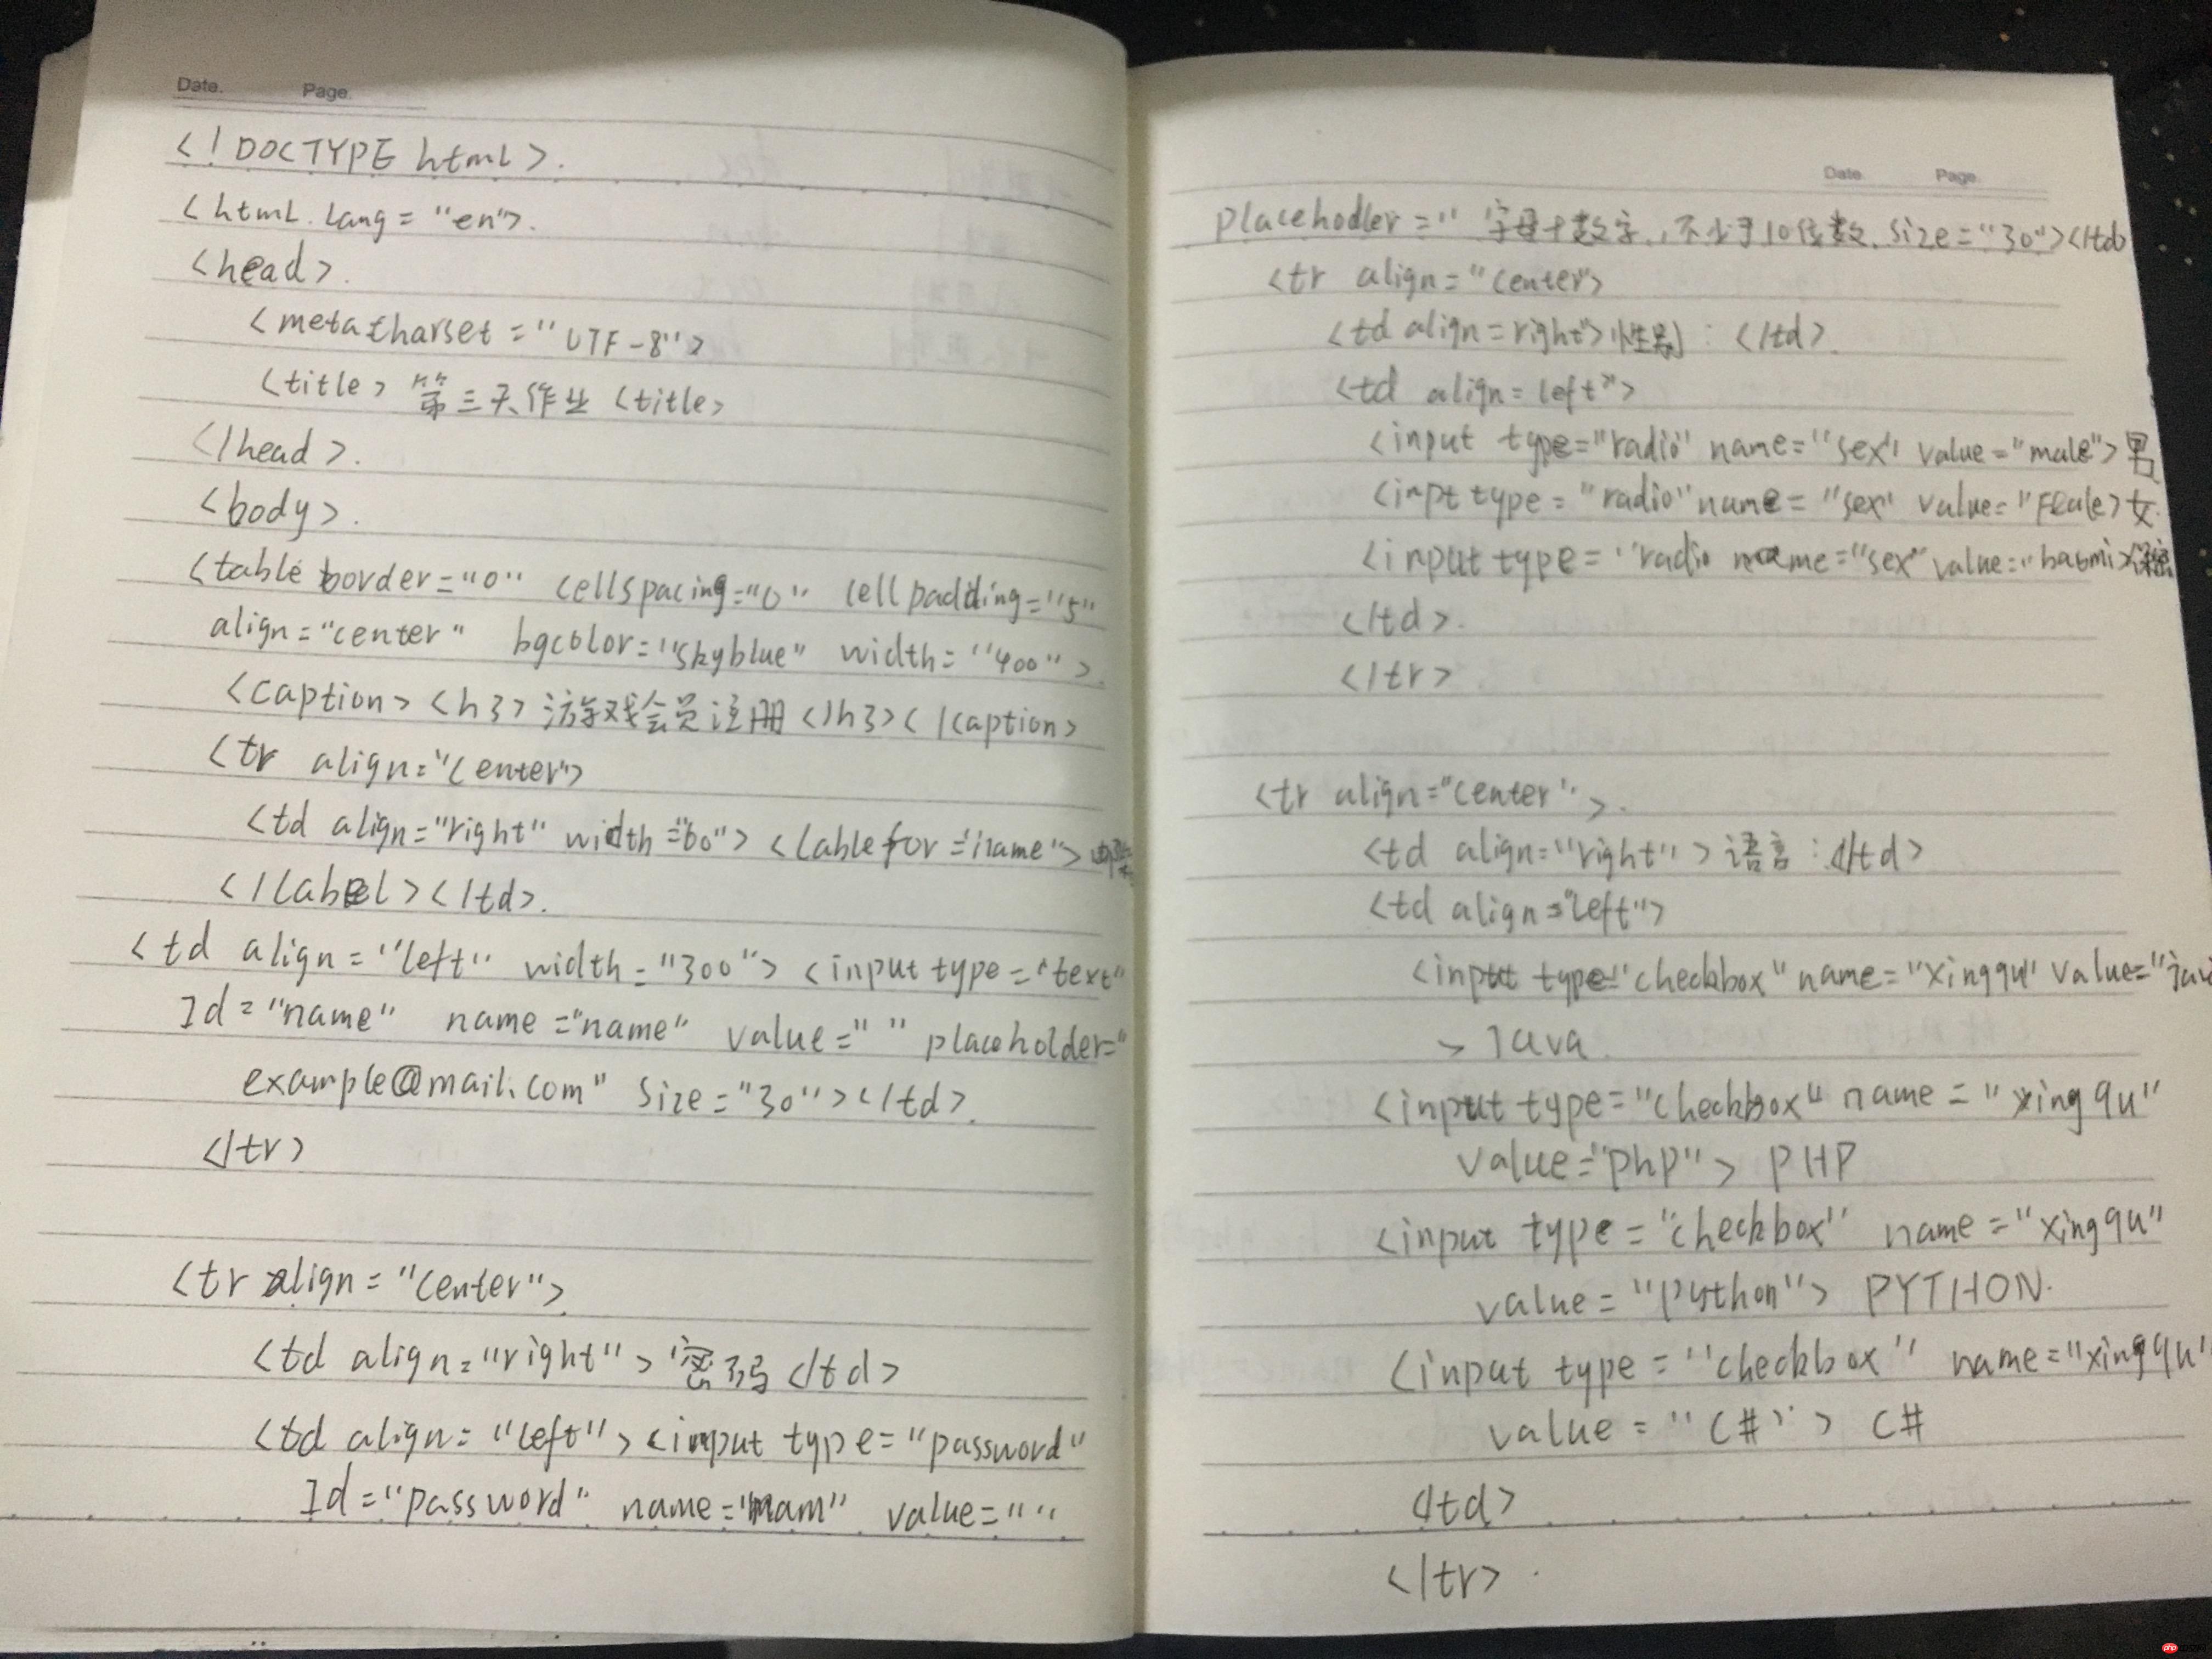 Date. Page.
<!DOCTYPE html>.
<html. lang = "en">.
<head>.
<meta charset = "UTF-8">
<title> 第三天作业 <title>
</head>.
<body>.
<table border="0" cellspacing="0" cellpadding="5"
align="center" bgcolor="skyblue" width="400">.
<caption> <h3> 游戏会员注册 </h3></caption>
<tr align="center">
<td align="right" width="60"> <lable for="name">
</label></td>.
<td align="left" width="300"> <input type="text"
Id="name" name="name" value=" " placeholder="
example@mail.com" size="30"></td>.
</tr>
<tr align="center">
<td align="right"> 密码 </td>
<td align="left"> <input type="password"
Id="password" name="mam" value=" "
Date. Page.
placehodler=" 字母+数字,不少于10位数, size="30"></td>
<tr align="center">
<td align=right">性别: </td>.
<td align=left">
<input type="radio" name="sex" value="male">男
<inpt type="radio" name="sex" value=" 女.
<input type="radio name="sex" value="
</td>.
</tr>
<tr align="center">.
<td align="right">语言:</td>
<td align="left">
<input type="checkbox" name="xingqu" value="
> Java.
<input type="checkbox" name="xingqu"
value="php"> PHP
<input type="checkbox" name="xingqu"
value="python"> PYTHON.
<input type="checkbox" name="xingqu"
value="C#"> C#
</td>
</tr>.
php